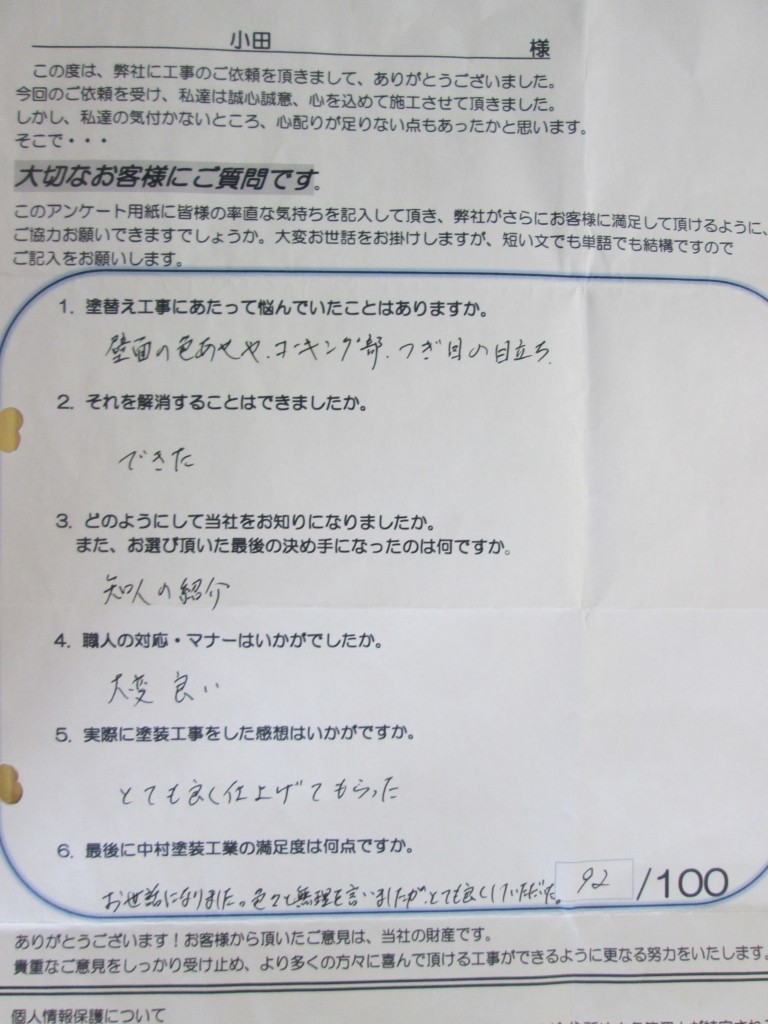 小田 様
この度は、弊社に工事のご依頼を頂きまして、ありがとうございました。
今回のご依頼を受け、私達は誠心誠意、心を込めて施工させて頂きました。
しかし、私達の気付かないところ、心配りが足りない点もあったかと思います。
そこで・・・
大切なお客様にご質問です。
このアンケート用紙に皆様の率直な気持ちを記入して頂き、弊社がさらにお客様に満足して頂けるように、
ご協力お願いできますでしょうか。大変お世話をお掛けしますが、短い文でも単語でも結構ですので
ご記入をお願いします。
1. 塗替え工事にあたって悩んでいたことはありますか。
壁面の色あせや、コーキング部、つぎ目の目立ち
2. それを解消することはできましたか。
できた
3. どのようにして当社をお知りになりましたか。
また、お選び頂いた最後の決め手になったのは何ですか。
知人の紹介
4. 職人の対応・マナーはいかがでしたか。
大変良い
5. 実際に塗装工事をした感想はいかがですか。
とても良く仕上げてもらった
6. 最後に中村塗装工業の満足度は何点ですか。
お世話になりました。色々と無理を言いましたが、とても良くしていただいた。 92 /100
ありがとうございます！お客様から頂いたご意見は、当社の財産です。
貴重なご意見をしっかり受け止め、より多くの方々に喜んで頂ける工事ができるように更なる努力をいたします。
個人情報保護について